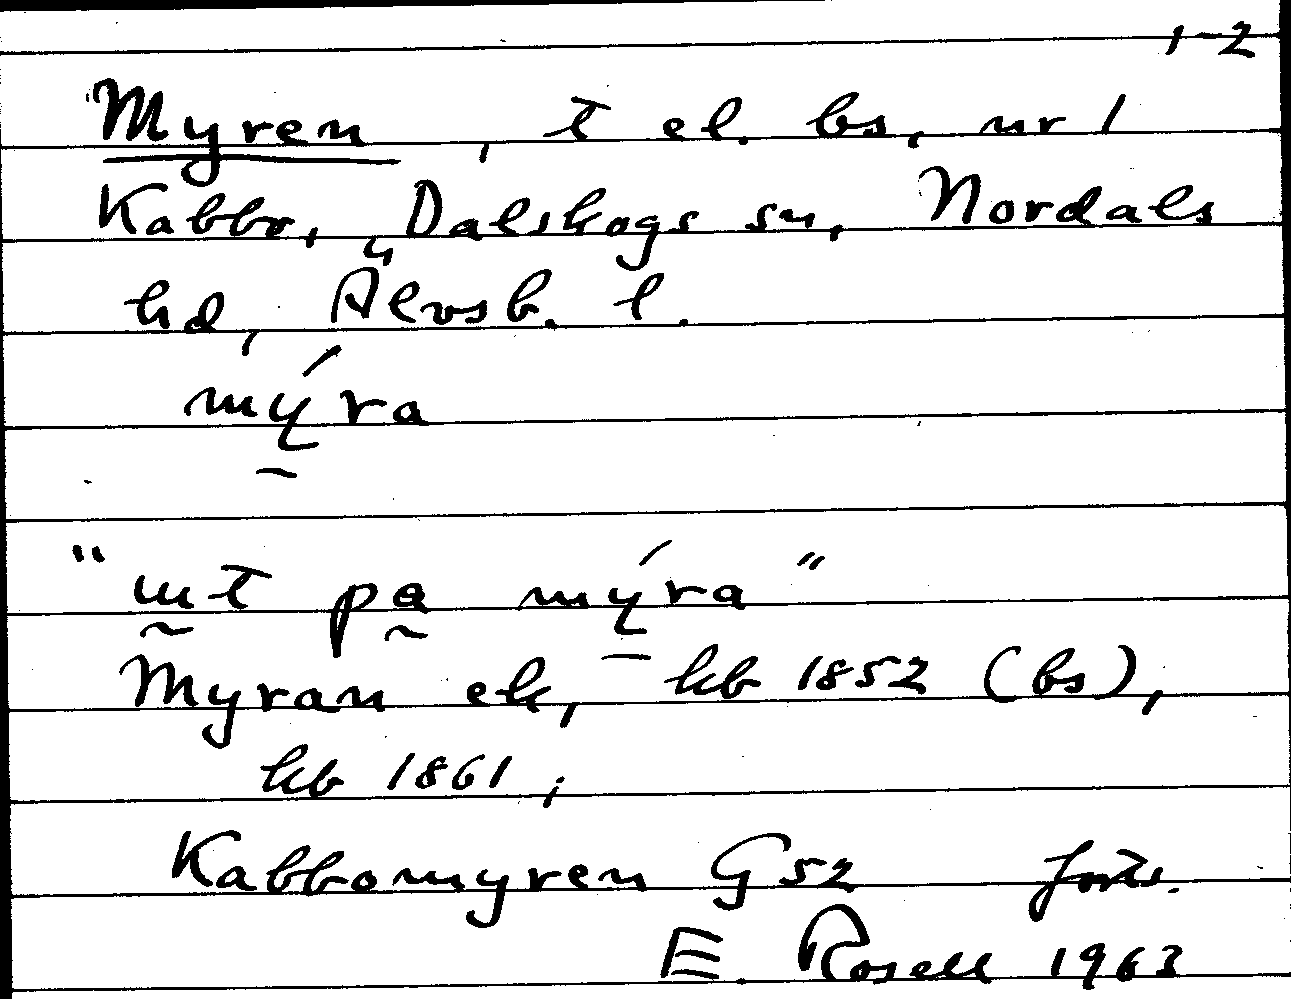 1-2
"Myren, t el. bs, nr 1
Kabbo, Dalskogs sn, Nordals
hd, Älvsb. l.
mý̱ra
"ut̰ pa̰ mý̱ra"
Myran ek, kb 1852 (bs),
kb 1861;
Kabbomyren G52 forts.
E. Rosell 1963